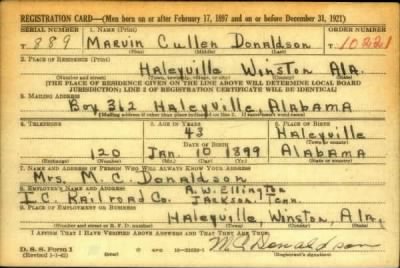 REGISTRATION CARD—(Men born on or after February 17, 1897 and on or before December 31, 1921)
SERIAL NUMBER 1. NAME (Print) ORDER NUMBER
T 889 Marvin Cullen Donaldson 10221
(First) (Middle) (Last)
2. PLACE OF RESIDENCE (Print)
Haleyville Winston Ala.
(Number and street) (Town, township, village, or city) (County) (State)
[THE PLACE OF RESIDENCE GIVEN ON THE LINE ABOVE WILL DETERMINE LOCAL BOARD
JURISDICTION; LINE 2 OF REGISTRATION CERTIFICATE WILL BE IDENTICAL]
3. MAILING ADDRESS
Box 362 Haleyville, Alabama
(Mailing address if other than place indicated on line 2. If same insert word same)
4. TELEPHONE 5. AGE IN YEARS 6. PLACE OF BIRTH
43 Haleyville
DATE OF BIRTH (Town or county)
120 Jan. 10 1899 Alabama
(Exchange) (Number) (Mo.) (Day) (Yr.) (State or country)
7. NAME AND ADDRESS OF PERSON WHO WILL ALWAYS KNOW YOUR ADDRESS
Mrs. M. C. Donaldson
8. EMPLOYER'S NAME AND ADDRESS A. W. Ellington
I. C. Railroad Co. Jackson, Tenn.
9. PLACE OF EMPLOYMENT OR BUSINESS
Haleyville, Winston, Ala.
(Number and street or R. F. D. number) (Town) (County) (State)
I AFFIRM THAT I HAVE VERIFIED ABOVE ANSWERS AND THAT THEY ARE TRUE.
D. S. S. Form 1 M C Donaldson
(Revised 1-1-42) (Registrant's signature)